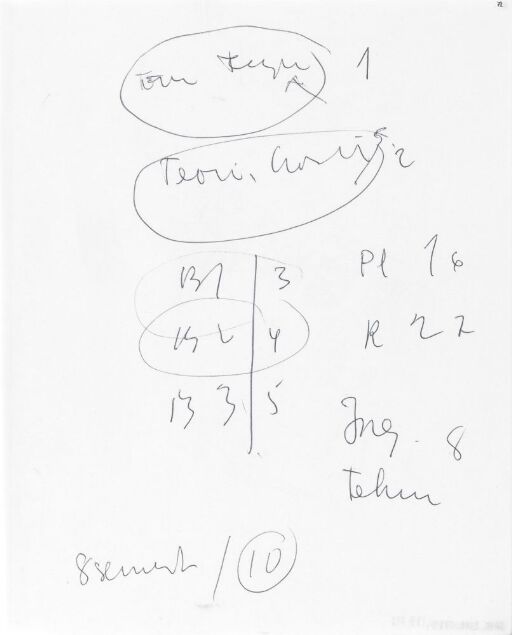 1
Teori. 2
B1 | 3
B2 | 4
B3 | 5
Pl 1 6
R 2 7
Ing. 8
Tehn
8 semest / 10